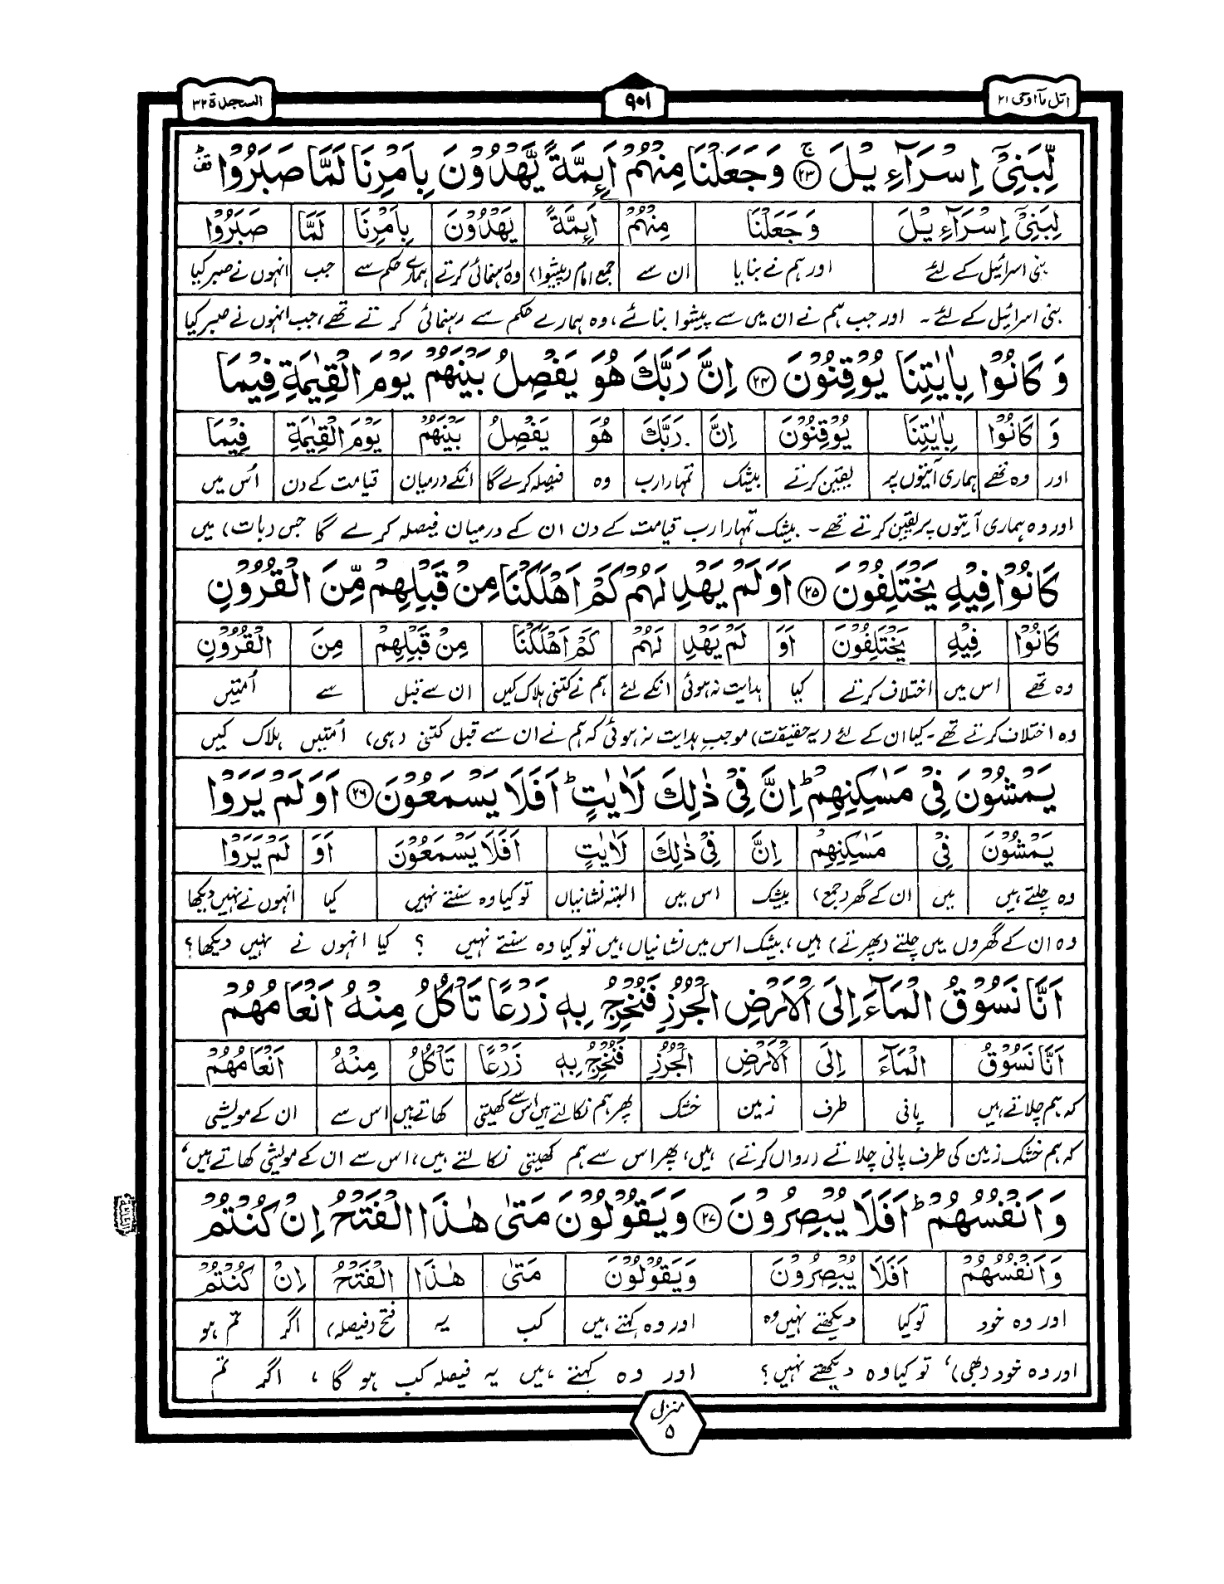 اتل مآ اوحی ۲۱
۹۰۱
السجدة ۳۲
لِّبَنِیْٓ اِسْرَآءِیْلَ ﴿۲۳﴾ وَ جَعَلْنَا مِنْهُمْ اَئِمَّةً یَّهْدُوْنَ بِاَمْرِنَا لَمَّا صَبَرُوْا
لِبَنِیْٓ اِسْرَآءِیْلَ وَجَعَلْنَا مِنْهُمْ اَئِمَّةً یَهْدُوْنَ بِاَمْرِنَا لَمَّا صَبَرُوْا
بنی اسرائیل کے لئے اور ہم نے بنایا ان سے جمع امام (پیشوا) وہ رہنمائی کرتے ہمارے حکم سے جب انہوں نے صبر کیا
بنی اسرائیل کے لئے۔ اور جب ہم نے ان میں سے پیشوا بنائے، وہ ہمارے حکم سے رہنمائی کرتے تھے، جب انہوں نے صبر کیا
وَ كَانُوْا بِاٰیٰتِنَا یُوْقِنُوْنَ ﴿۲۴﴾ اِنَّ رَبَّكَ هُوَ یَفْصِلُ بَیْنَهُمْ یَوْمَ الْقِیٰمَةِ فِیْمَا
وَ كَانُوْا بِاٰیٰتِنَا یُوْقِنُوْنَ اِنَّ رَبَّكَ هُوَ یَفْصِلُ بَیْنَهُمْ یَوْمَ الْقِیٰمَةِ فِیْمَا
اور وہ تھے ہماری آیتوں پر یقین کرتے بیشک تمہارا رب وہ فیصلہ کرے گا انکے درمیان قیامت کے دن اُس میں
اور وہ ہماری آیتوں پر یقین کرتے تھے۔ بیشک تمہارا رب قیامت کے دن ان کے درمیان فیصلہ کرے گا جس (بات) میں
كَانُوْا فِیْهِ یَخْتَلِفُوْنَ ﴿۲۵﴾ اَوَ لَمْ یَهْدِ لَهُمْ كَمْ اَهْلَكْنَا مِنْ قَبْلِهِمْ مِّنَ الْقُرُوْنِ
كَانُوْا فِیْهِ یَخْتَلِفُوْنَ اَوَ لَمْ یَهْدِ لَهُمْ كَمْ اَهْلَكْنَا مِنْ قَبْلِهِمْ مِنَ الْقُرُوْنِ
وہ تھے اس میں اختلاف کرتے کیا ہدایت نہ ہوئی انکے لئے ہم نے کتنی ہلاک کیں ان سے قبل سے اُمتیں
وہ اختلاف کرتے تھے۔ کیا ان کے لئے (یہ حقیقت) موجب ہدایت نہ ہوئی کہ ہم نے ان سے قبل کتنی (ہی) اُمتیں ہلاک کیں
یَمْشُوْنَ فِیْ مَسٰكِنِهِمْ ؕ اِنَّ فِیْ ذٰلِكَ لَاٰیٰتٍ ؕ اَفَلَا یَسْمَعُوْنَ ﴿۲۶﴾ اَوَ لَمْ یَرَوْا
یَمْشُوْنَ فِیْ مَسٰكِنِهِمْ اِنَّ فِیْ ذٰلِكَ لَاٰیٰتٍ اَفَلَا یَسْمَعُوْنَ اَوَ لَمْ یَرَوْا
وہ چلتے ہیں میں ان کے گھر (جمع) بیشک اس میں البتہ نشانیاں تو کیا وہ سنتے نہیں کیا انہوں نے نہیں دیکھا
وہ ان کے گھروں میں چلتے (پھرتے) ہیں، بیشک اس میں نشانیاں ہیں تو کیا وہ سنتے نہیں ؟ کیا انہوں نے نہیں دیکھا؟
اَنَّا نَسُوْقُ الْمَآءَ اِلَی الْاَرْضِ الْجُرُزِ فَنُخْرِجُ بِهٖ زَرْعًا تَاْكُلُ مِنْهُ اَنْعَامُهُمْ
اَنَّا نَسُوْقُ الْمَآءَ اِلَی الْاَرْضِ الْجُرُزِ فَنُخْرِجُ بِهٖ زَرْعًا تَاْكُلُ مِنْهُ اَنْعَامُهُمْ
کہ ہم چلاتے ہیں پانی طرف زمین خشک پھر ہم نکالتے ہیں اس سے کھیتی کھاتے ہیں اس سے ان کے مویشی
کہ ہم خشک زمین کی طرف پانی چلاتے (رواں کرتے) ہیں، پھر اس سے ہم کھیتی نکالتے ہیں، اس سے ان کے مویشی کھاتے ہیں،
وَ اَنْفُسُهُمْ ؕ اَفَلَا یُبْصِرُوْنَ ﴿۲۷﴾ وَ یَقُوْلُوْنَ مَتٰی هٰذَا الْفَتْحُ اِنْ كُنْتُمْ
وَ اَنْفُسُهُمْ اَفَلَا یُبْصِرُوْنَ وَیَقُوْلُوْنَ مَتٰی هٰذَا الْفَتْحُ اِنْ كُنْتُمْ
اور وہ خود تو کیا دیکھتے نہیں وہ اور وہ کہتے ہیں کب یہ فتح (فیصلہ) اگر تم ہو
اور وہ خود (بھی)، تو کیا وہ دیکھتے نہیں؟ اور وہ کہتے ہیں یہ فیصلہ کب ہو گا ، اگر تم
منزل ۵